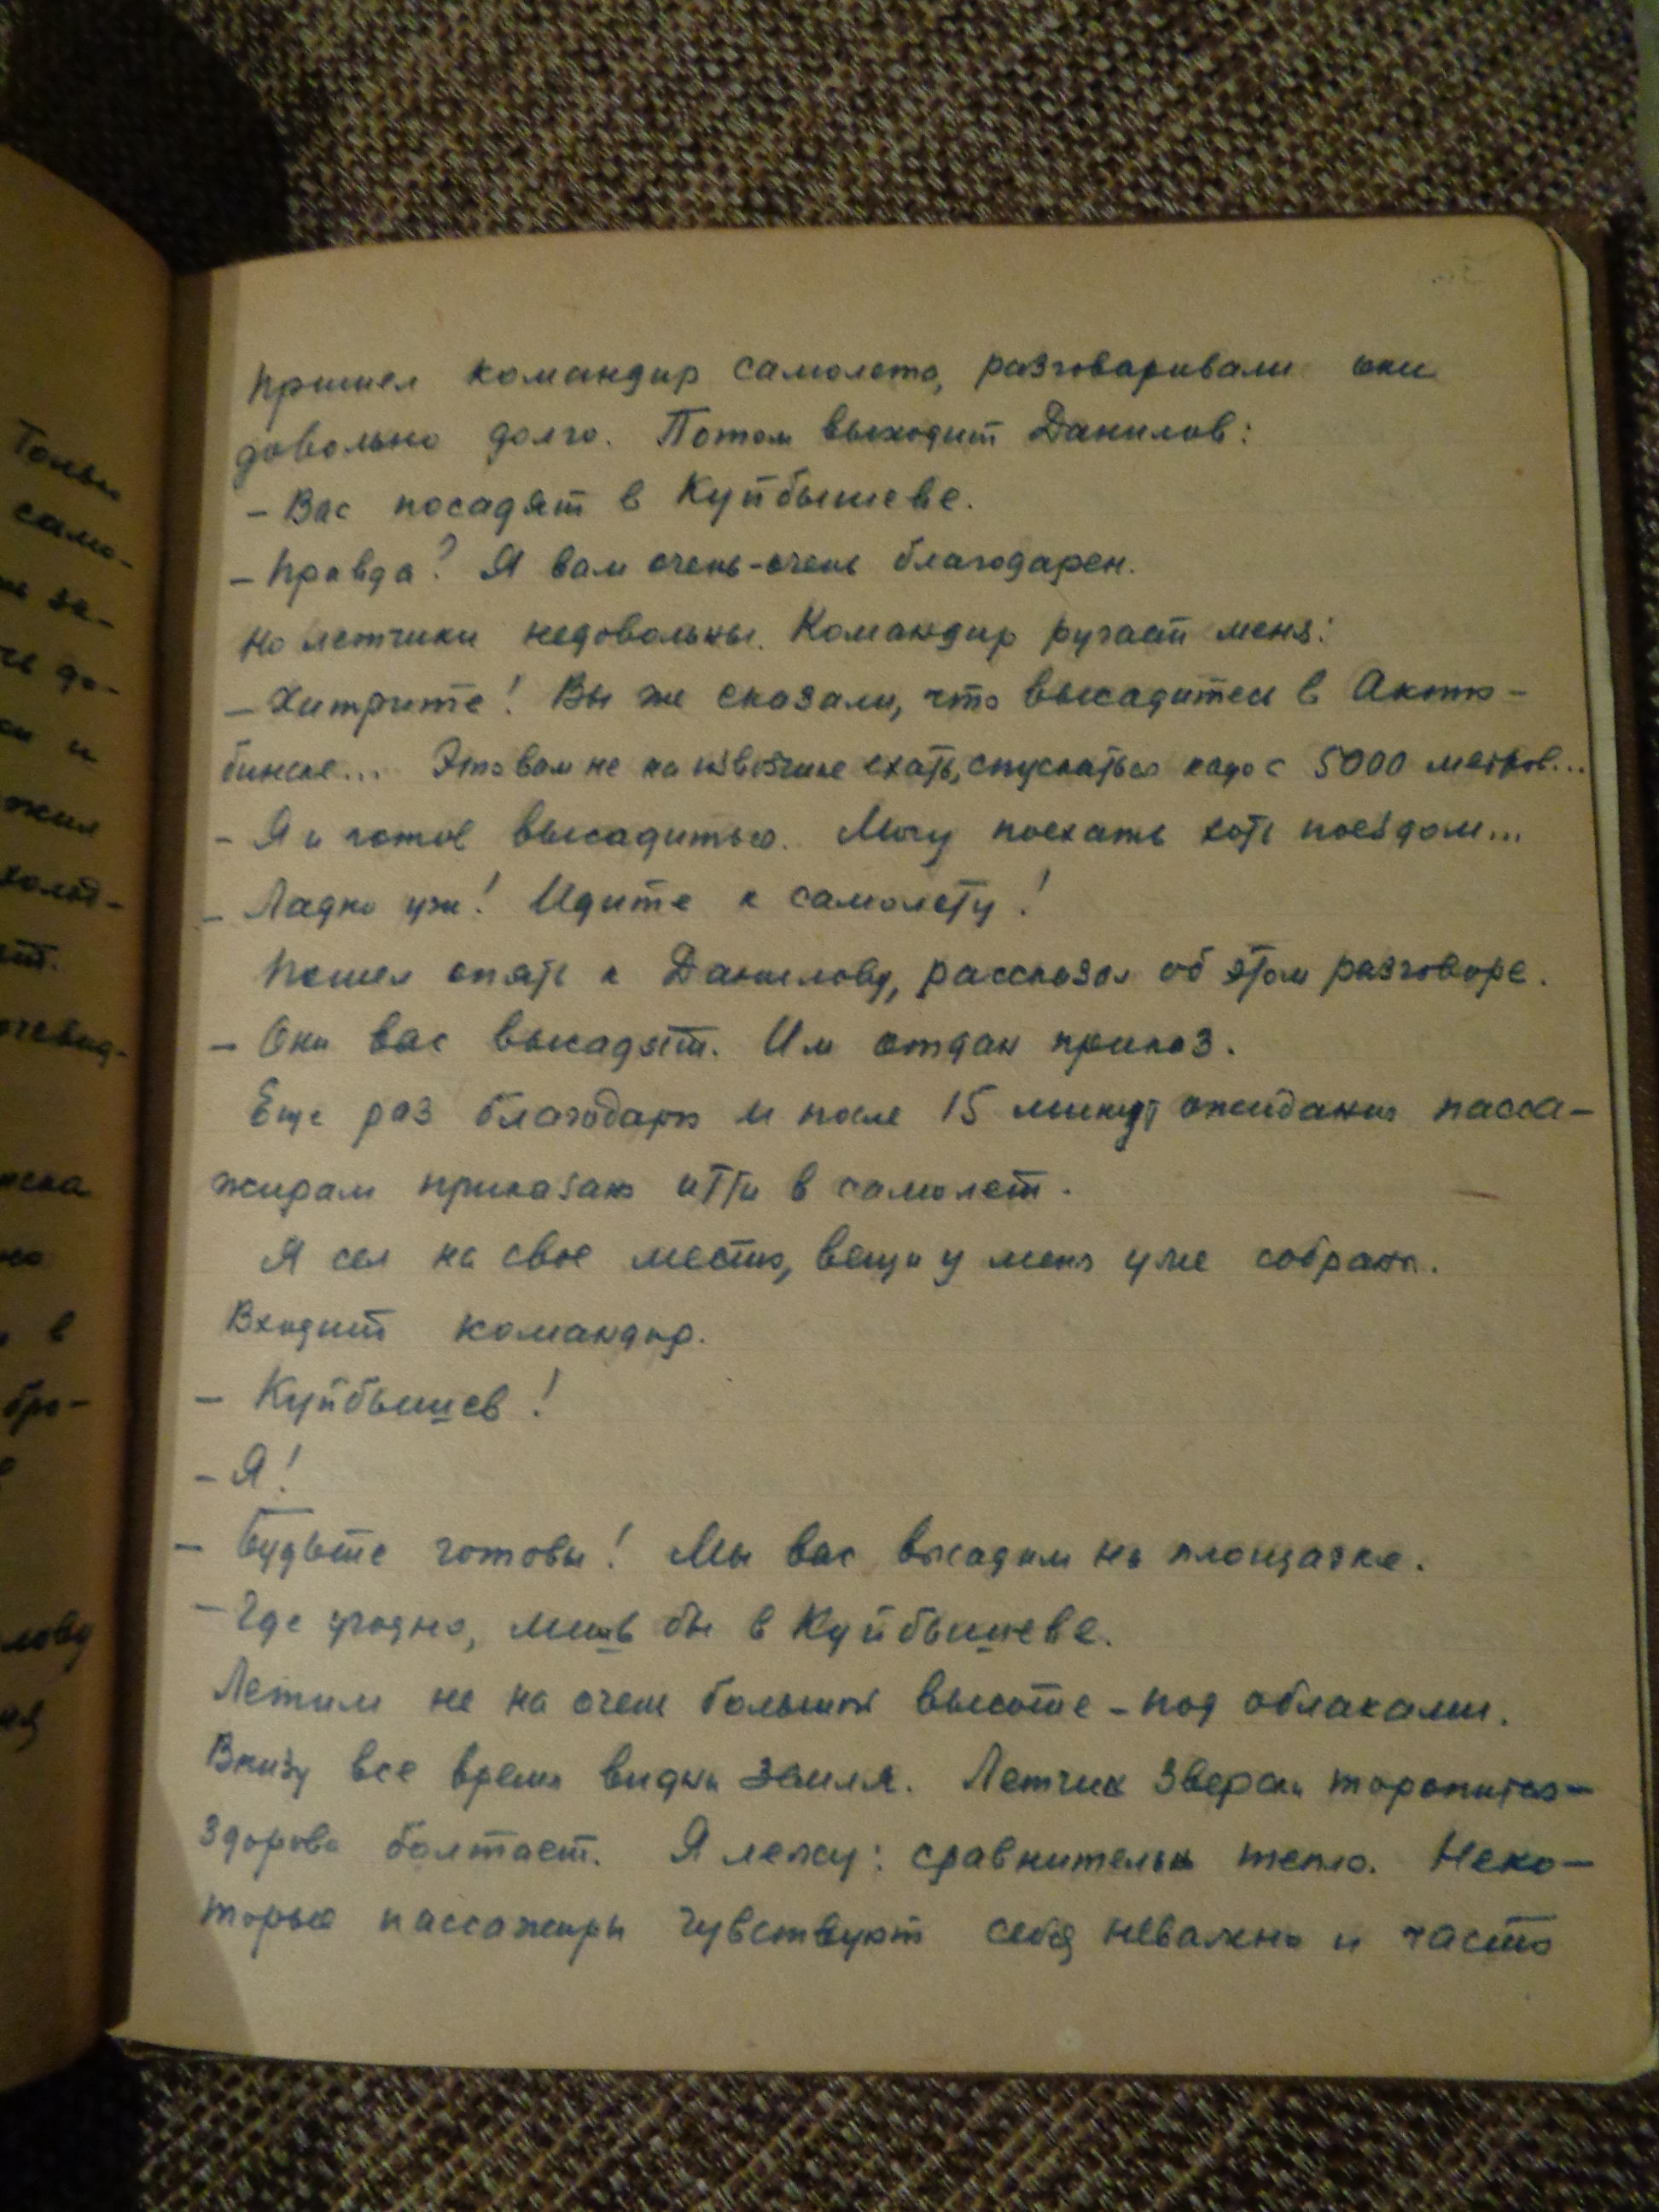 Только
само-
за-
до-
и
жил
холод-
ет.
очевид-
в
бро-
лову
Пришел командир самолета, разговаривали они
довольно долго. Потом выходит Данилов:
– Вас посадят в Куйбышеве.
– Правда? Я вам очень-очень благодарен.
Но летчики недовольны. Командир ругает меня:
– Хитрите! Вы же сказали, что высадитесь в Актю-
бинске... Это вам не на извозчике ехать, спускаться надо с 5000 метров...
– Я и готов высадиться. Могу поехать хоть поездом...
– Ладно уж! Идите к самолету!
Пошел опять к Данилову, рассказал об этом разговоре.
– Они вас высадят. Им отдан приказ.
Еще раз благодарю и после 15 минут ожидания пасса-
жирам приказано итти в самолет.
Я сел на свое место, вещи у меня уже собраны.
Входит командир.
– Куйбышев!
– Я!
– Будьте готовы! Мы вас высадим на площадке.
– Где угодно, лишь бы в Куйбышеве.
Летим не на очень большой высоте – под облаками.
Внизу все время видна земля. Летчик зверски торопится –
здорово болтает. Я лежу: сравнительно тепло. Неко-
торые пассажиры чувствуют себя неважно и часто